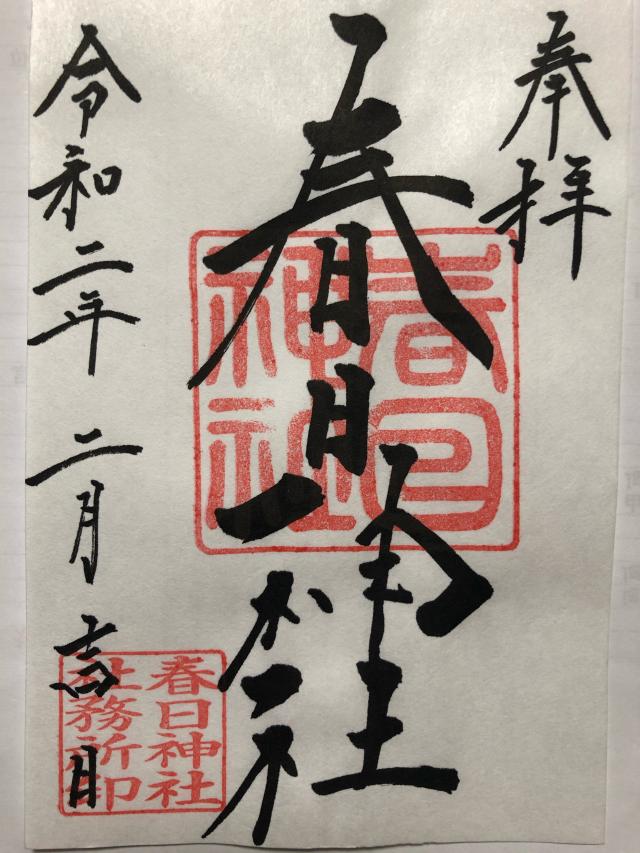 奉拝
春日神社
春日
神社
令和二年 二月吉日
春日神社
社務所印